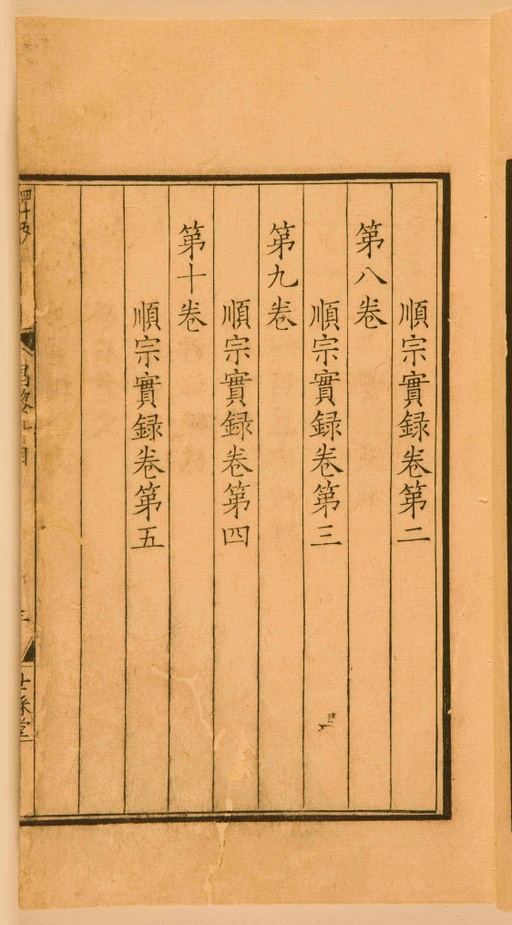 順宗實録卷第二
第八卷
順宗實録卷第三
第九卷
順宗實録卷第四
第十卷
順宗實録卷第五
世綵堂